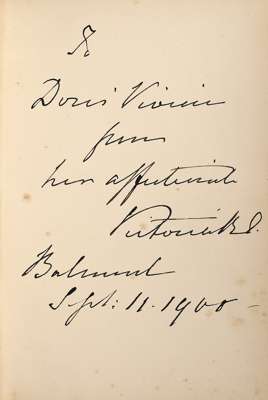 To
Doris Vivian
from
her affectionate
Victoria R.I.
Balmoral
Sept: 11. 1900 -